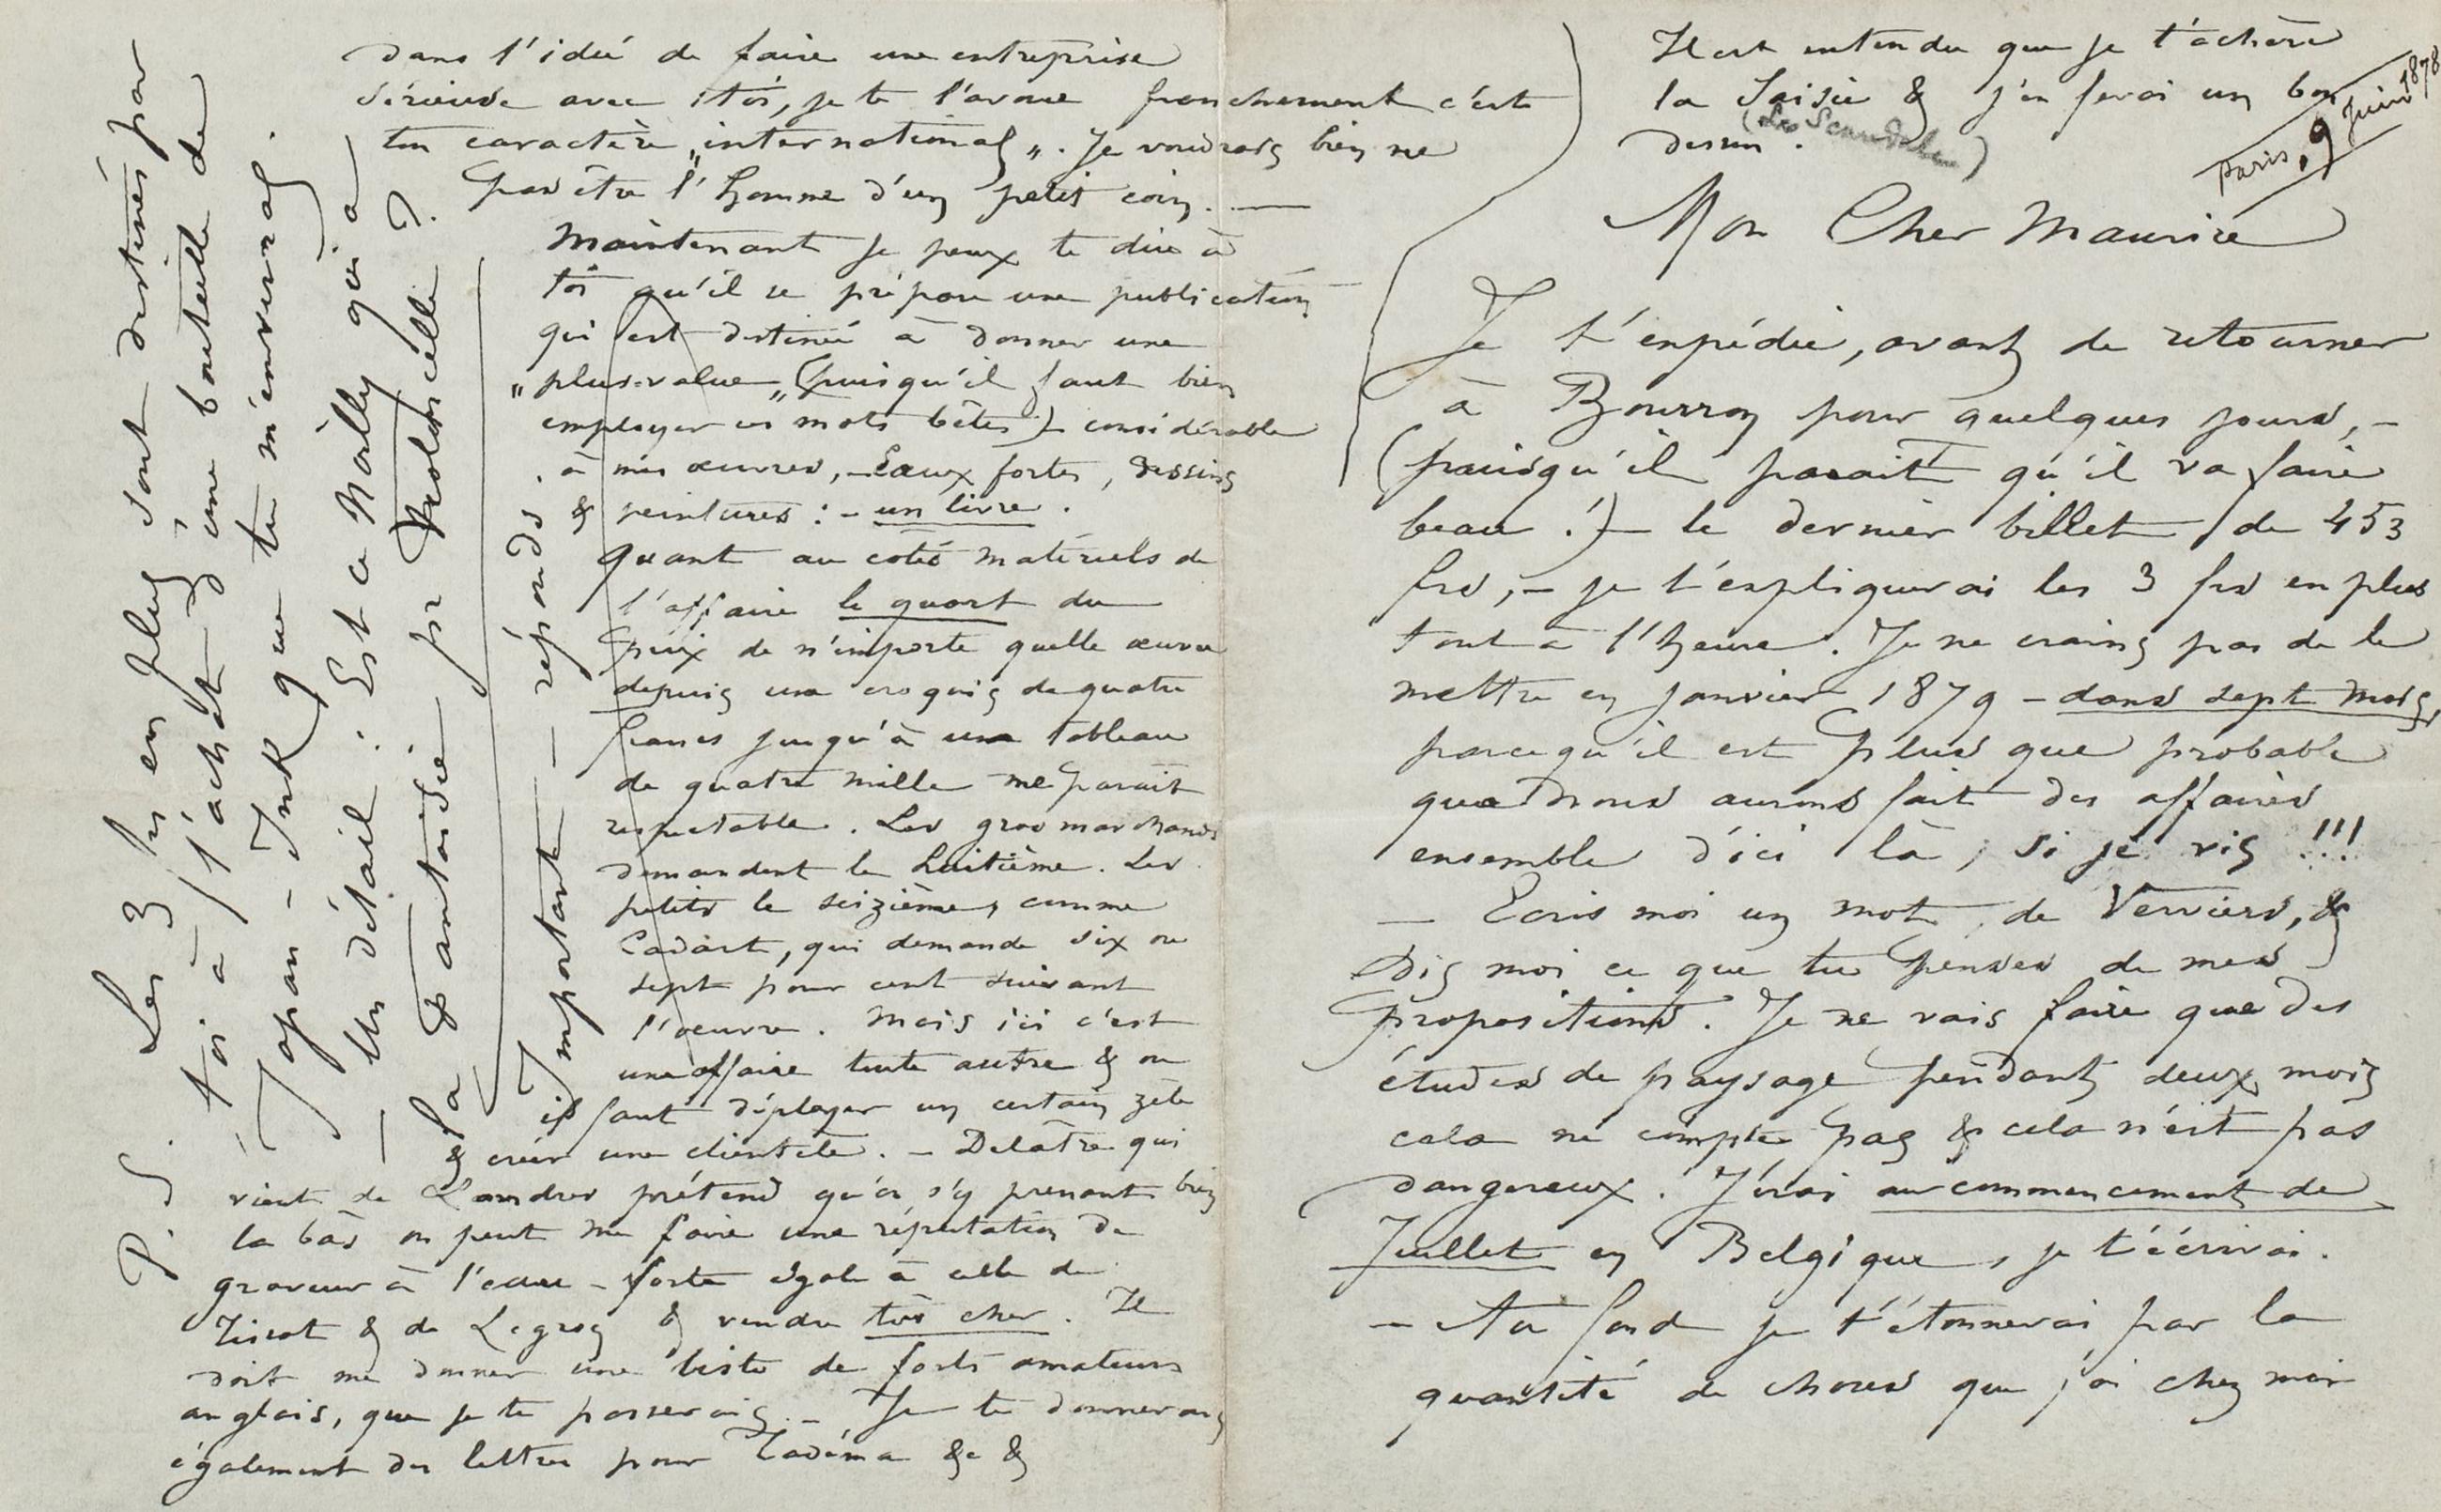 Il est entendu que je t'achève
la Saisie & j'en ferai un bon
dessin.
(Les Scandales)
Paris, 9 Juin 1878
Mon Cher Maurice
Je t'expédie, avant de retourner
à Bourron pour quelques jours, -
(puisqu'il parait qu'il va faire
beau !) - le dernier billet de 453
frs, - je t'expliquerai les 3 frs en plus
tout à l'heure. Je ne crains pas de le
mettre en janvier 1879 - dans sept mois,
parcequ'il est plus que probable
que nous aurons fait des affaires
ensemble d'ici là, si je vis !!!
- Ecris moi un mot, de Verviers, &
dis moi ce que tu penses de mes
propositions. Je ne vais faire que des
études de paysage pendant deux mois
cela ne compte pas & cela n'est pas
dangereux. J'irai au commencement de
Juillet en Belgique, je t'écrirai.
- Au fond je t'étonnerai par la
quantité de choses que j'ai chez moi
dans l'idée de faire une entreprise
sérieuse avec toi, je te l'avoue franchement c'est
ton caractère „international„. Je voudrais bien ne
pas être l'homme d'un petit coin. —
Maintenant je peux te dire à
toi qu'il se prépare une publication
qui est destinée à donner une
„plus-value„ (puisqu'il faut bien
employer ces mots bêtes) - considérable
à mes œuvres, - Eaux fortes, dessins
& peintures : - un livre.
Quant au côtés matériels de
l'affaire le quart du
prix de n'importe quelle œuvre
depuis un croquis de quatre
francs jusqu'à un tableau
de quatre mille me parait
respectable. Les gros marchands
demandent le huitième. Les
petits le seizième, comme
Cadart, qui demande six ou
sept pour cent suivant
l'œuvre. Mais ici c'est
une affaire toute autre & ou
il faut déployer un certain zèle
& créer une clientèle. - Delâtre qui
vient de Londres prétend qu'en s'y prenant bien
la bas on peut me faire une réputation de
graveur à l'eau-forte égale à celle de
Tissot & de Legros & vendre très cher. Il
doit me donner une liste de forts amateurs
anglais, que je te passerais. - Je te donnerais
également des lettres pour Tadéma &c &
Important — réponds.
P.S. Les 3 frs en plus sont destinés par
toi à l'achat d'une bouteille de
Japan-Ink que tu m'enverras.
- Un détail : Est ce Noilly qui a
la Fantaisie pr Violoncelle ?